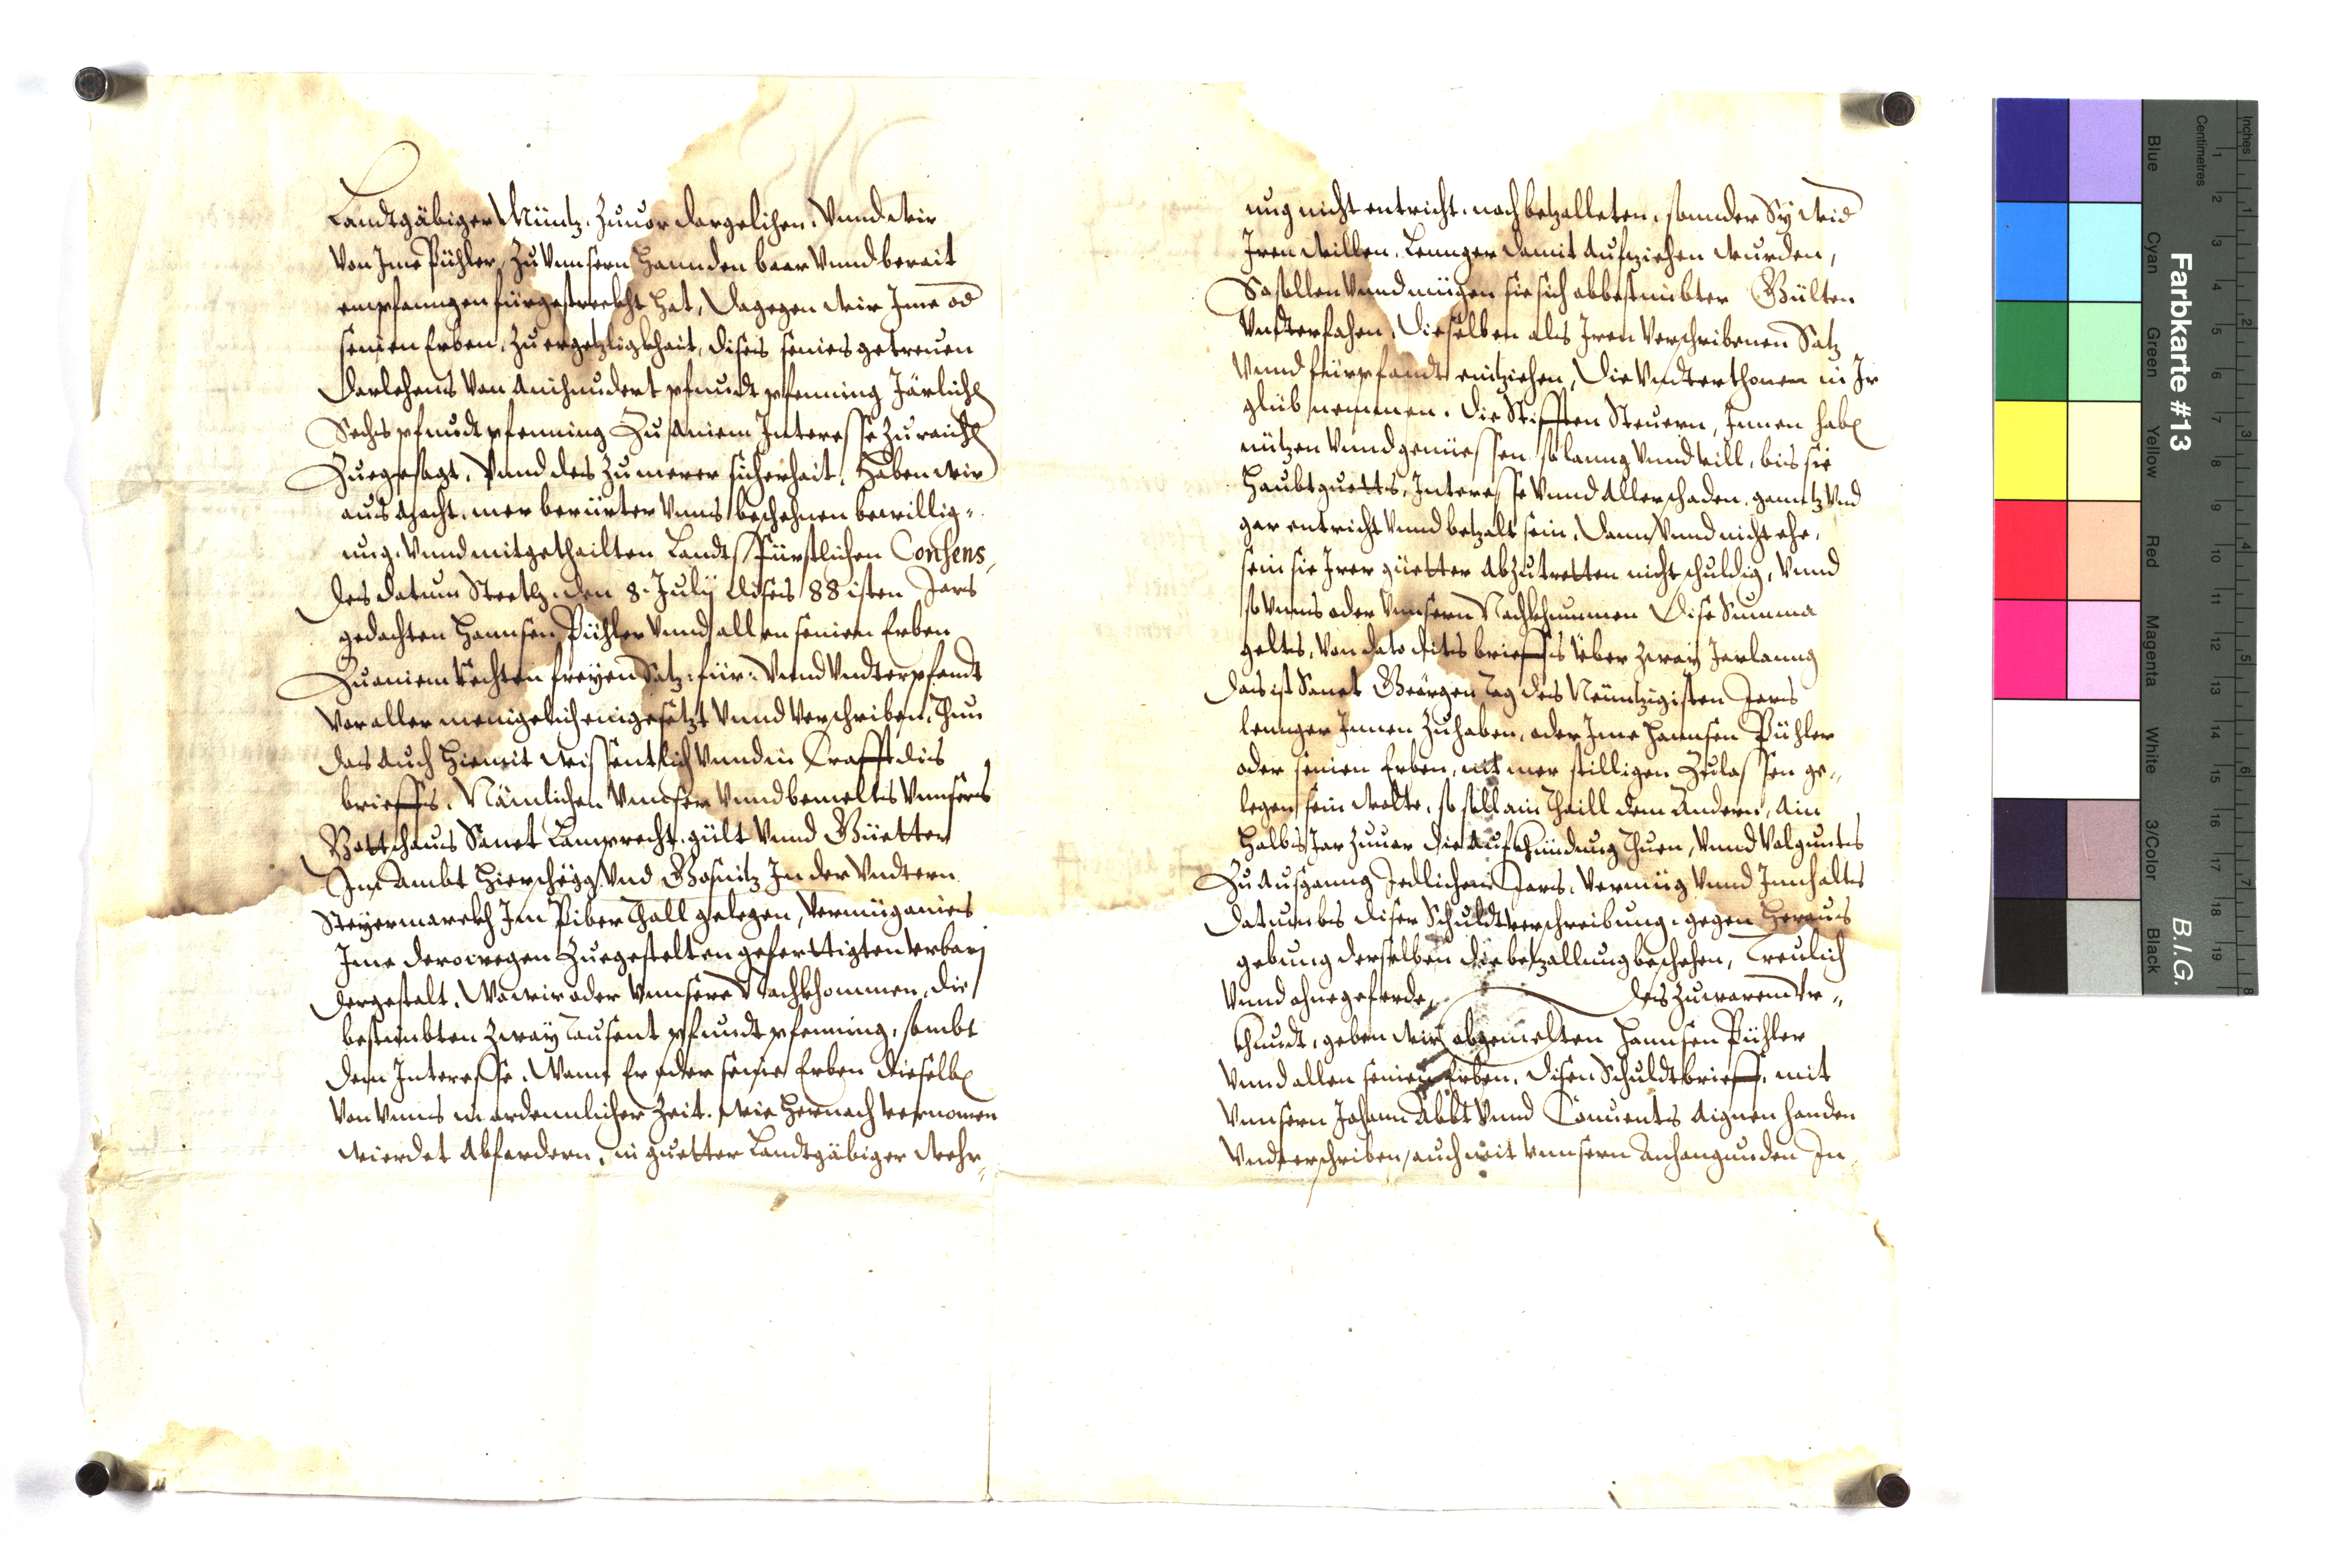 Landtgäbiger Müntz, Zuuor dargelihen, Vnnd wir
Von Ime Pühler, Zu Vnnsern Hannden baar Vnnd berait
empfanngen fürgestreckht hat, Dagegen wir Ime od
seinen Erben, Zu ergetzligkhait, dises seines getreuen
Darlehens Von ainhundert pfundt pfenning Järlich
Sechs pfundt pfenning Zu ainem Interesse Zuraich
Zuegesagt, Vnnd des Zu merer sicherhait, Haben wir
aus Macht, mer berürter Vnns beschehnen bewillig¬
ung, Vnnd mitgethailten Landtsfürstlichen Consens,
des datum Gretz, den 8. July dises 88 isten Jars
gedachten Hannsen Pühler Vnnd allen seinen Erben
Zu ainem rechten freyen Satz: für: Vnnd Vndterpfandt
Vor aller menigelich eingesetzt Vnnd Verschriben, Thun
das auch Hiemit wissentlich Vnnd in Crafft dis
brieffs, Nämlichen Vnnser Vnnd bemeltes Vnnsers
Gottshaus Sanct Lamprecht, gült Vnnd Güetter
Im Ambt Hierschegg Vnd Gosnitz In der Vndtern
Steyermarckh Im Piber Thall gelegen, Vermüg aines
Ime derowegen Zuegestelten geferttigten Vrbarj
dergestalt, Wo wir oder Vnnsere Nachkhommen, die
bestimbten Zway Tausent pfundt pfenning, sambt
dem Interesse, Wann Er oder seine Erben dieselb
Von Vnns in ordennlicher Zeit, wie hernach vernomen
wierdet Abfordern, in guetter Landtgäbiger Wehr¬
ung nicht entricht, noch betzalleten, sonnder Sy wid
Iren willen, Lennger damit Aufziehen wurden,
So sollen Vnnd mügen sie sich obbestimbter Gülten
Vndterfahen, Dieselben als Iren Verschribenen Satz
Vnnd fürpfandt einziehen, Die Vndterthonen in Ir
glüb nemmen, die Stifften Steuern, Innen hab
nützen Vnnd geniessen so lanng Vnnd vill, bis sie
Haubtguetts, Interesse Vnnd Aller schaden, ganntz Vnd
gar entricht Vnnd betzalt sein, Dann Vnnd nicht ehe,
sein sie Irer güetter Abzutretten nicht schuldig, Vnnd
so Vnns oder Vnnsern Nachkhummen Dise Summa
geltes, Von dato dits brieffs über Zway Jar lanng
das ist Sanct Geörgen Tag des Neüntzigisten Jars
lennger Innen Zuhaben, oder Ime Hannsen Pühler
oder seinen Erben, nit mer stilligen Zulassen ge¬
legen sein wolte, so soll ain Thaill dem Andern, Ain
Halbs Jar Zuuor die Aufkhündung Thuen, Vnnd Volgunts
Zu Ausgang Jedliches Jars, Vermüg Vnnd Innhaltes
datumbs diser Schuldtverschreibung, gegen Heraus
gebung derselben die betzallung beschehen, Treulich
Vnnd ohne geferde, Des Zu warem Vr¬
khundt, geben wir obgemelten Hannsen Pühler
Vnnd allen seinen Erben, disen Schuldtbrieff, mit
Vnnsern Johann Abbt Vnnd Conuents Aignen Handen
Vndterschriben, auch mit Vnnsern Anhangunden In¬
Farbkarte #13
B.I.G.
Inches
Centimetres
1 2 3 4 5 6 7 8 9 10 11 12 13 14 15 16 17 18 19
1 2 3 4 5 6 7 8
Blue
Cyan
Green
Yellow
Red
Magenta
White
3/Color
Black